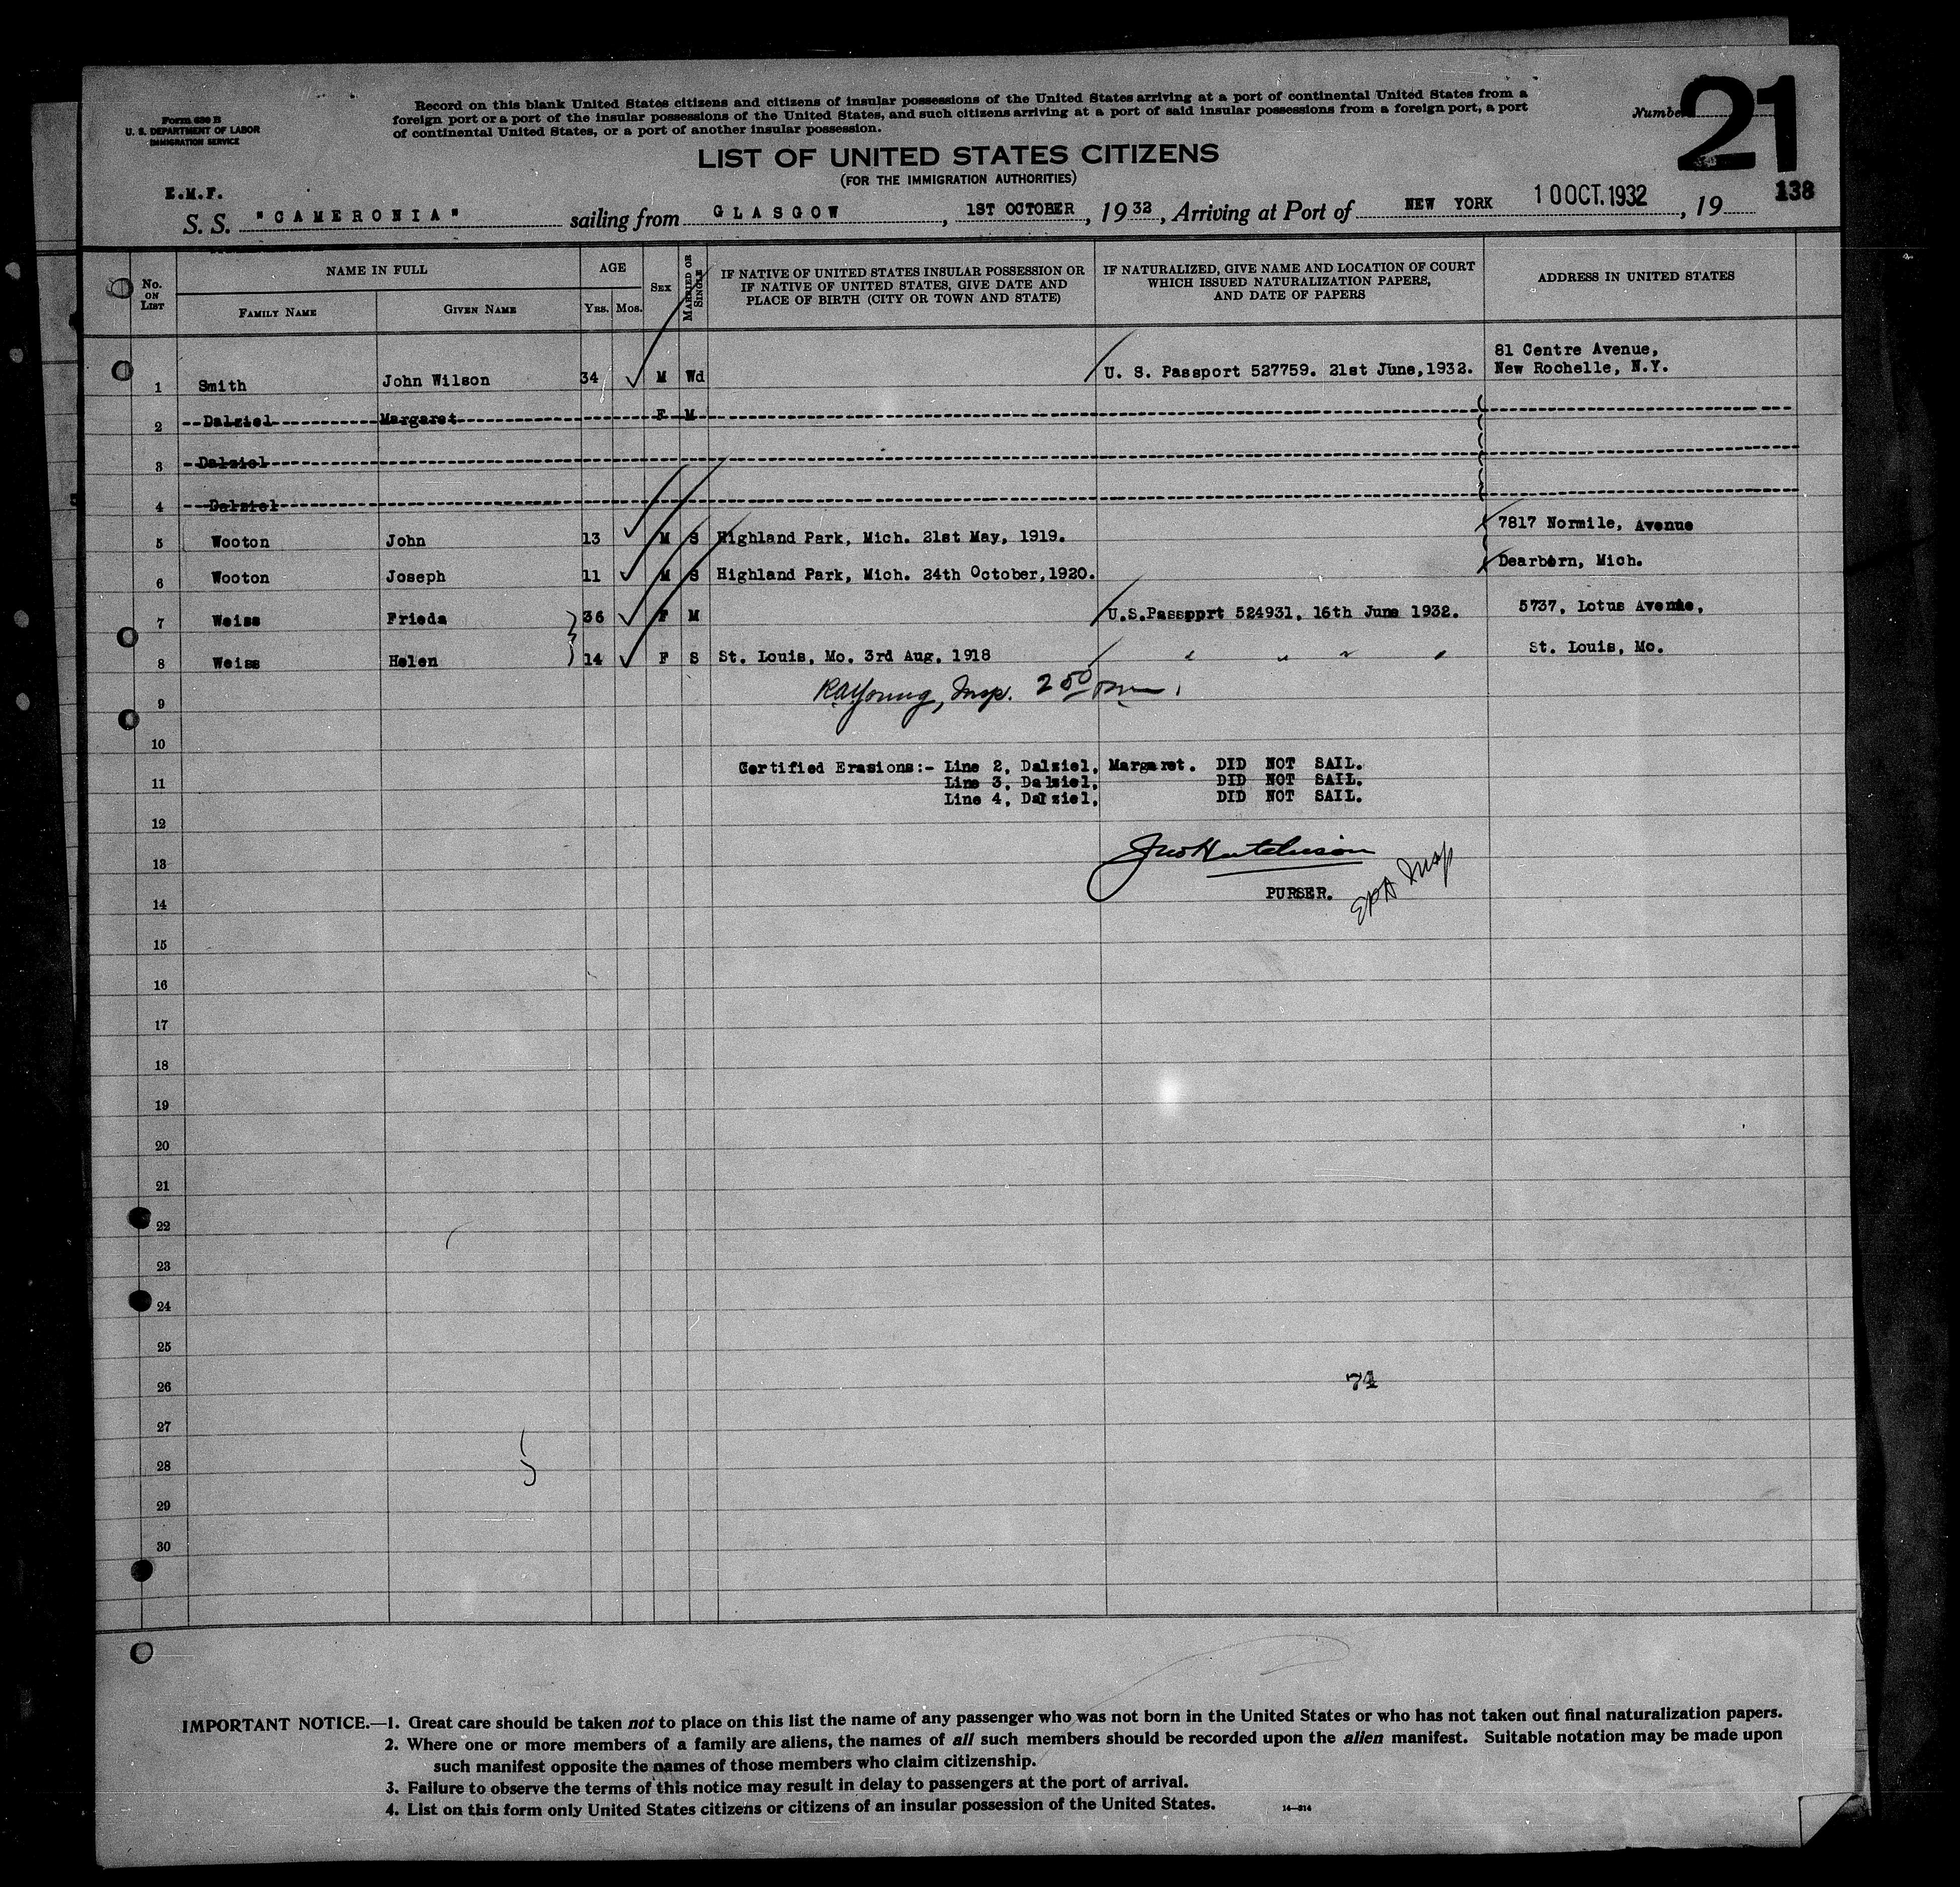 Form 630 B
U. S. DEPARTMENT OF LABOR
IMMIGRATION SERVICE
Record on this blank United States citizens and citizens of insular possessions of the United States arriving at a port of continental United States from a
foreign port or a port of the insular possessions of the United States, and such citizens arriving at a port of said insular possessions from a foreign port, a port
of continental United States, or a port of another insular possession.
Number 21
LIST OF UNITED STATES CITIZENS
(FOR THE IMMIGRATION AUTHORITIES)
138
E.M.F.
S. S. "CAMERONIA" sailing from GLASGOW, 1ST OCTOBER, 1932, Arriving at Port of NEW YORK 10 OCT. 1932, 19
No. ON LIST
NAME IN FULL
FAMILY NAME
GIVEN NAME
AGE
YRS. MOS.
SEX
MARRIED OR SINGLE
IF NATIVE OF UNITED STATES INSULAR POSSESSION OR
IF NATIVE OF UNITED STATES, GIVE DATE AND
PLACE OF BIRTH (CITY OR TOWN AND STATE)
IF NATURALIZED, GIVE NAME AND LOCATION OF COURT
WHICH ISSUED NATURALIZATION PAPERS,
AND DATE OF PAPERS
ADDRESS IN UNITED STATES
1 Smith John Wilson 34 M Wd U. S. Passport 527759. 21st June,1932. 81 Centre Avenue,
New Rochelle, N.Y.
2 Dalziel Margaret F M
3 Dalziel
4 Dalziel
5 Wooton John 13 M S Highland Park, Mich. 21st May, 1919. 7817 Normile, Avenue
6 Wooton Joseph 11 M S Highland Park, Mich. 24th October,1920. Dearborn, Mich.
7 Weiss Frieda 36 F M U.S.Passpprt 524931, 16th June 1932. 5737, Lotus Avenue,
8 Weiss Helen 14 F S St. Louis, Mo. 3rd Aug. 1918 " " " " St. Louis, Mo.
9 RAYoung, Insp. 2 50 pm.
10
Certified Erasions:- Line 2, Dalziel, Margaret. DID NOT SAIL.
11 Line 3, Dalziel, DID NOT SAIL.
Line 4, Dalziel, DID NOT SAIL.
12
13 Jno Hutchison
14 PURSER. EPA Insp
15
16
17
18
19
20
21
22
23
24
25
26 74
27
28
29
30
IMPORTANT NOTICE.—1. Great care should be taken not to place on this list the name of any passenger who was not born in the United States or who has not taken out final naturalization papers.
2. Where one or more members of a family are aliens, the names of all such members should be recorded upon the alien manifest. Suitable notation may be made upon
such manifest opposite the names of those members who claim citizenship.
3. Failure to observe the terms of this notice may result in delay to passengers at the port of arrival.
4. List on this form only United States citizens or citizens of an insular possession of the United States. 14—314